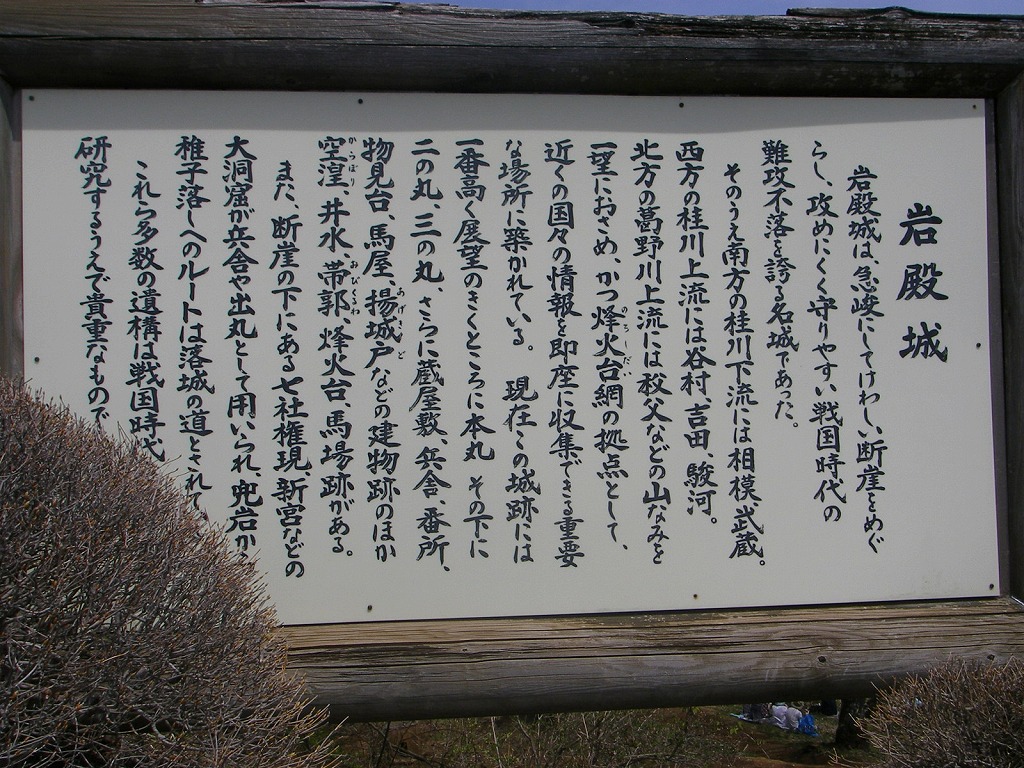 岩殿城
岩殿城は、急峻にしてけわしい断崖をめぐ
らし、攻めにくく守りやすい戦国時代の
難攻不落を誇る名城であった。
そのうえ南方の桂川下流には相模、武蔵。
西方の桂川上流には谷村、吉田、駿河。
北方の葛野川上流には秩父などの山なみを
一望におさめ、かつ烽火台網の拠点として、
のろしだい
近くの国々の情報を即座に収集できる重要
な場所に築かれている。 現在この城跡には
一番高く展望のきくところに本丸 その下に
二の丸、三の丸、さらに蔵屋敷、兵舎、番所、
物見台、馬屋、揚城戸などの建物跡のほか
あげきど
空湟、井水、帯郭、烽火台、馬場跡がある。
からぼり おびくるわ
また、断崖の下にある七社権現、新宮などの
大洞窟が兵舎や出丸として用いられ、兜岩か
稚子落しへのルートは落城の道とされて
これら多数の遺構は戦国時代
研究するうえで貴重なもので